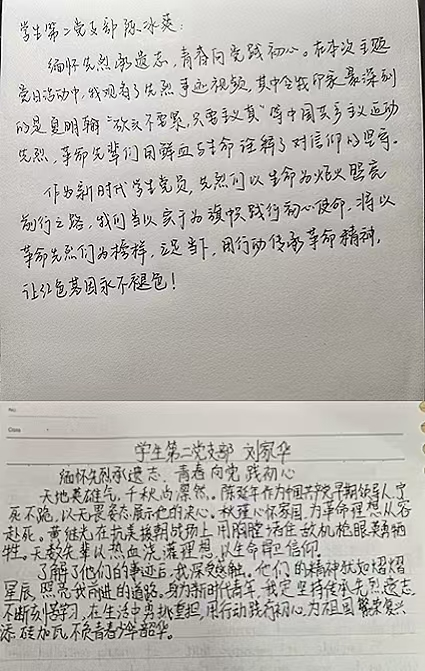 学生第二党支部 陈冰爽:
缅怀先烈承遗志,青春向党践初心。在本次主题
党日活动中,我观看了先烈事迹视频,其中令我印象最深刻
的是夏明翰"砍头不要紧,只要主义真"等中国共产主义运动
先烈,革命先辈们用鲜血与生命诠释了对信仰的坚守。
作为新时代学生党员,先烈们以生命为炬火照亮
前行之路,我们当以实干为旗帜践行初心使命,将以
革命先烈们为榜样,立足当下,用行动传承革命精神,
让红色基因永不褪色!
No.
Date
学生第二党支部 刘家华
缅怀先烈承遗志,青春向党践初心
天地英雄气,千秋尚凛然。陈延年作为中国共产党早期领导人,宁
死不跪,以无畏姿态展示他的决心。秋瑾心怀家国,为革命理想从容
赴死。黄继光在抗美援朝战场上用胸膛堵住敌机枪眼英勇牺
牲。无数先辈以热血浇灌理想,以生命捍卫信仰。
了解了他们的事迹后,我深受感触。他们的精神犹如熠熠
星辰,照亮我前进的道路。身为新时代青年,我定坚持传承先烈遗志
不断刻苦学习,在生活中勇挑重担,用行动践行初心,为祖国繁荣复兴
添砖加瓦,不负青春韶华。